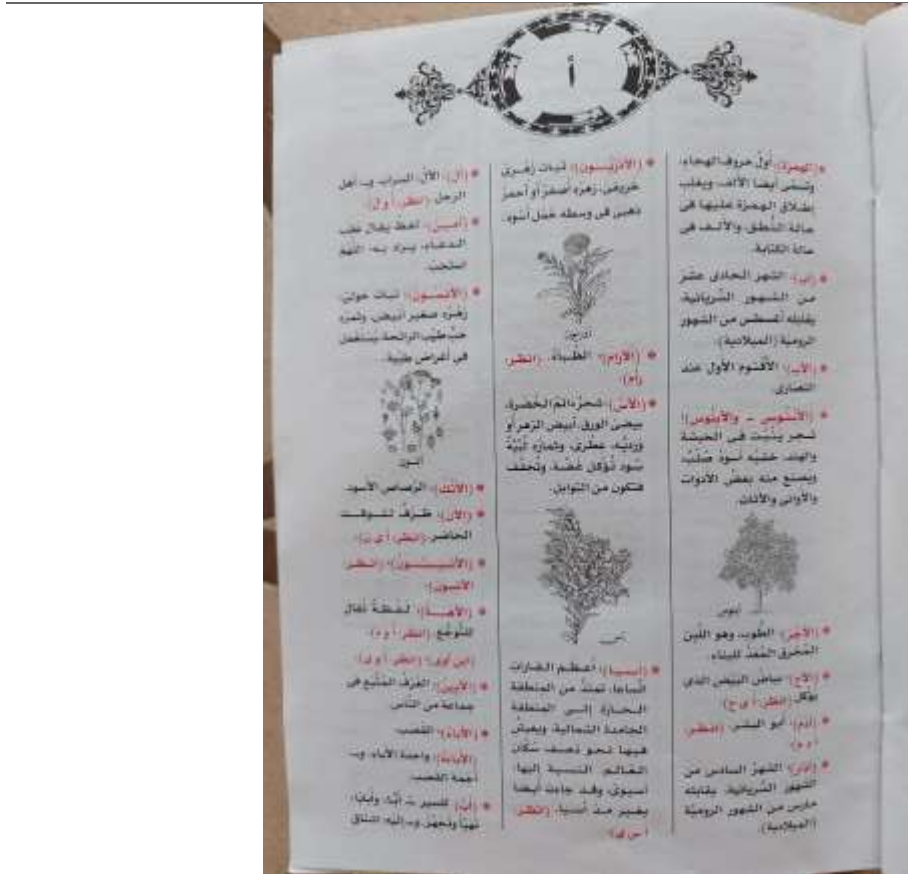 أ
• (الهمزة): أول حروف الهجاء،
وتسمى أيضا الألف، ويغلب
إطلاق الهمزة عليها فى
حالة النُّطق، والألف فى
حالة الكتابة.
• (آب): الشهر الحادى عشر
من الشهور السُّريانية،
يقابله أغسطس من الشهور
الرومية (الميلادية).
• (الآب): الأقنوم الأول عند
النصارى.
• (الآبنوس - والآبنوس):
شجر ينبُت فى الحبشة
والهند، خشبه أسود صُلْب،
ويصنع منه بعض الأدوات
والأوانى والأثاث.
آبنوس
• (الآجر): الطُّوب، وهو اللَّبِن
المُحْرق المُعَدّ للبناء.
• (الآح): بياض البيض الذى
يؤكل (انظر: أ ى ح).
• (آدم): أبو البشر. (انظر:
أ د م).
• (آذار): الشهرُ السادس من
الشهور السُّريانية، يقابله
مارس من الشهور الروميّة
(الميلادية).
• (الآذريون): نبات زهرى
خريفى، زهره أصفر أو أحمر
ذهبى فى وسطه خمل أسود.
• (الآرام): الظِّباء. (انظر:
رأم).
• (الآس): شجر دائم الخُضرة،
بيضىّ الورق، أبيض الزهر أو
ورديّه، عطرى، وثماره لُبِّيَّة
سُود تُؤكل غضّة، وتجفف
فتكون من التوابل.
آس
• (آسيا): أعظم القارات
اتِّساعا، تمتدّ من المنطقة
الحارة إلى المنطقة
الجامدة الشمالية، ويعيش
فيها نحو نصف سكان
العالم. النسبة إليها:
آسيوى، وقد جاءت أيضا
بغير مد أسيا. (انظر:
أ س ى).
• (آل): الآل: السراب. و- أهل
الرجل. (انظر: أ و ل).
• (آمين): لفظ يقال عقب
الدعاء، يراد به: اللهم
استجب.
• (الآنسون): نبات حولىّ،
زهره صغير أبيض، وثمره
حبّ طيّب الرائحة يُستعمل
فى أغراض طبية.
آنسون
• (الآنك): الرَّصاص الأسود.
• (الآن): ظرفٌ للوقت
الحاضر. (انظر: أ ى ن).
• (الآنيسون): (انظر:
الآنسون).
• (الآهة): لفظة تقال
للتوجُّع. (انظر: أ و ه).
(ابن آوى): (انظر: أ و ى).
• (الآيين): العُرْف المتَّبع فى
جماعة من الناس.
• (الأباءُ): القصب.
(الأباءَة): واحدة الأباء. و-
أجمة القصب.
• (أبَّ) للسير - أبًّا، وأبابًا:
تهيَّأ وتجهّز. و- إليه: اشتاق